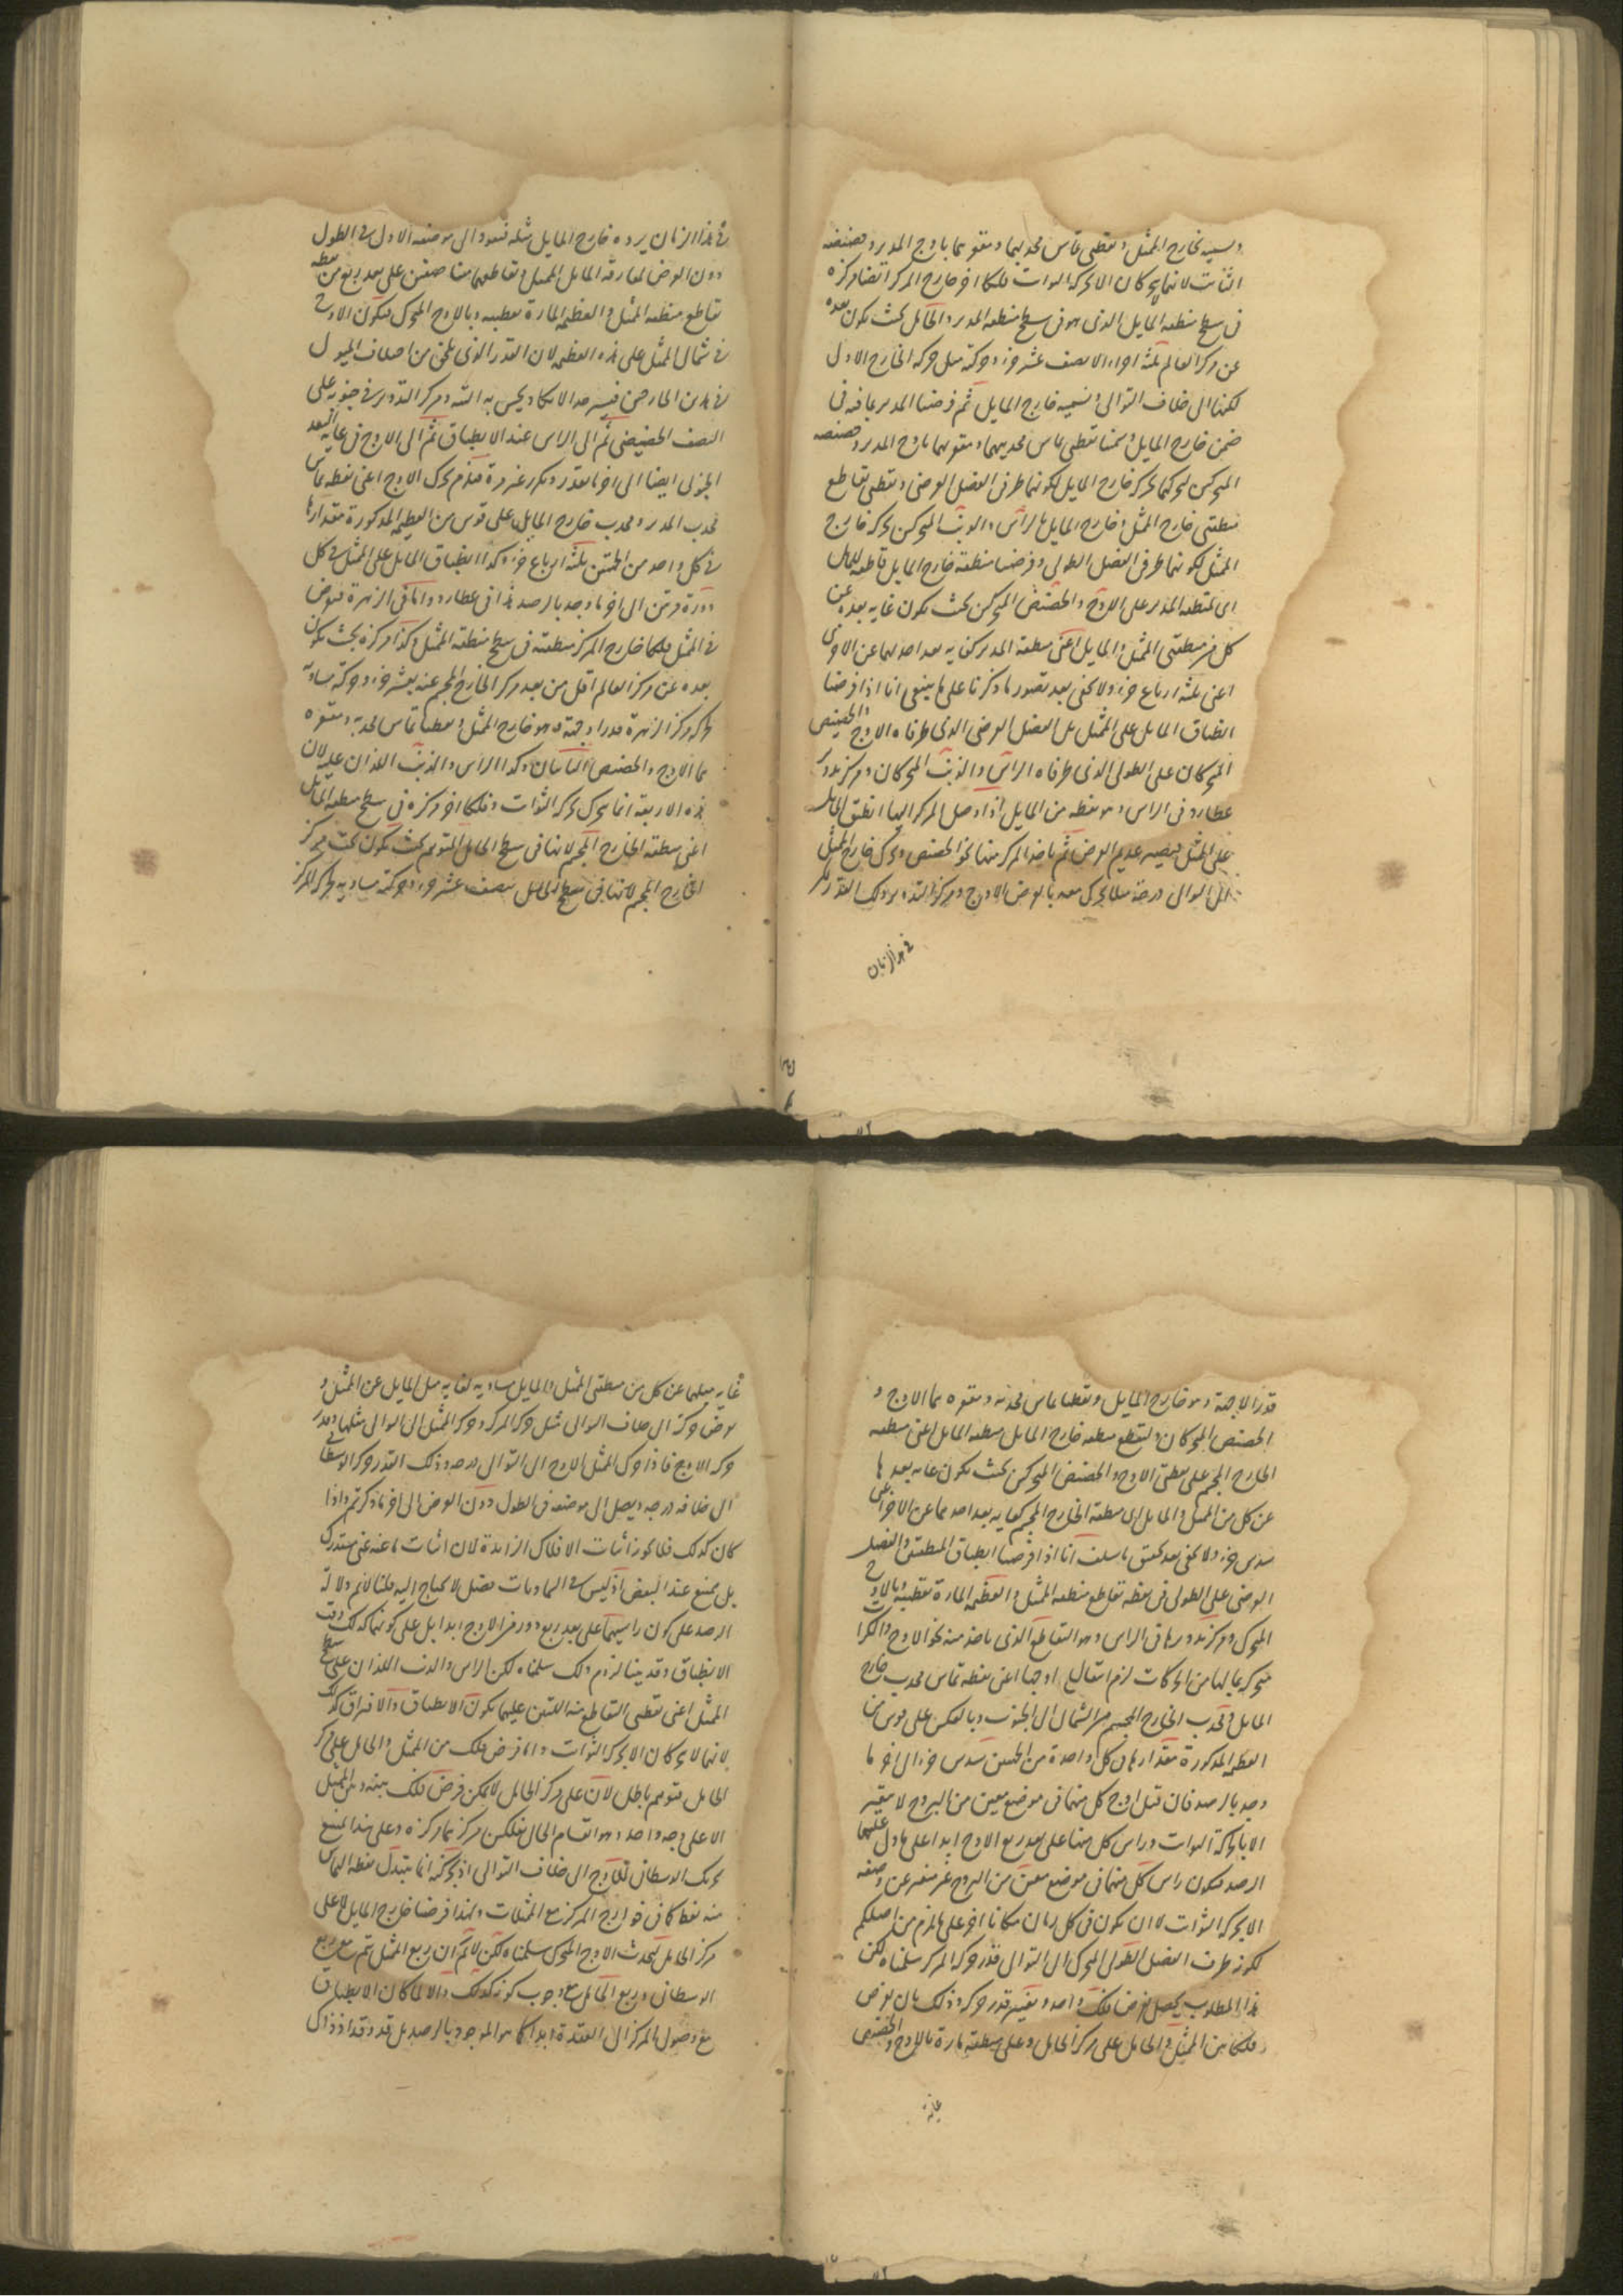 ونسميه بخارج الممثل ونقطتي تماس محدبيهما ومقعريهما باوج المدير وحضيضه
الثابت لانهما يتحركان الا بحركة الثوابت وفلكا اخر خارج المركز ايضا مركزه
في سطح منطقة المايل الذي هو في سطح منطقة المدير والحامل بحيث يكون بعده
عن مركز العالم ثلثة اجزاء الا نصف عشر جزء وحركته مثل حركة الخارج الاول
لكنها الى خلاف التوالي ونسميه خارج المايل ثم فرضنا المدير بما فيه في
ضمن خارج المايل وسمينا نقطتي تماس محدبيهما ومقعريهما باوج المدير وحضيضه
المتحركين لتحركهما بحركة خارج المايل لكونهما طرفي الفصل العرضي ونقطتي تقاطع
منطقتي خارج الممثل وخارج المايل بالراس والذنب المتحركين بحركة خارج
الممثل لكونهما طرفي الفصل الطولي وفرضنا منطقة خارج المايل قاطعة للمايل
اي لمنطقة المدير على الاوج والحضيض المتحركين بحيث يكون غاية بعده عن
كل من منطقتي الممثل والمايل اعني منطقة المدير كغاية بعد احدهما عن الاخرى
اعني ثلثة ارباع جزء ولا يخفى بعد تصور ما ذكرنا على ما ينبغي انا اذا فرضنا
انطباق المايل على الممثل بل الفصل العرضي الذي طرفاه الاوج والحضيض
المتحركان على الطولي الذي طرفاه الراس والذنب المتحركان ومركز تدوير
عطارد في الراس وهو نقطة من المايل اذا وصل المركز اليها انطبق المايل
على الممثل فيصير عديم العرض ثم ياخذ المركز منها نحو الحضيض وحرك خارج الممثل
الى التوالي درجة مثلا تحرك معه بالعرض الاوج ومركز التدوير ذلك القدر لكن
في هذا الزمان
في هذا الزمان يرده خارج المايل مثله فيعود الى موضعه الاول في الطول
دون العرض لمفارقة المايل الممثل وتقاطعهما متناصفين على بعد ربع من نقطة
تقاطع منطقة الممثل والعظيمة المارة بقطبيه وبالاوج المتحرك فيكون الاوج
في شمال الممثل على هذه العظيمة لان القدر الذي يلحق من اختلاف الميول
النصف الحضيضي ثم الى الراس عند الانطباق ثم الى الاوج في غاية البعد
محدب المدير ومحدب خارج المايل على قوس من العظيمة المذكورة مقدارها
في كل واحد من الجهتين ثلثة ارباع جزء وكذا انطباق المايل على الممثل في كل
دورة مرتين الى اخر ما وجد بالرصد هذا في عطارد واما في الزهرة فنفرض
في الممثل فلكا خارج المركز منطقته في سطح منطقة الممثل وكذا مركزه بحيث يكون
بعده عن مركز العالم اقل من بعد مركز الخارج المجسم عنه بعشر جزء وحركته مساوية
لحركة مركز الزهرة قدرا وجهة وهو خارج الممثل ونقطتا تماس محدبه ومقعره
هما الاوج والحضيض الثابتان وكذا الراس والذنب اللذان عليه لان
هذه الاربعة انما تتحرك بحركة الثوابت وفلكا اخر مركزه في سطح منطقة المايل
اعني منطقة الخارج المجسم لانها في سطح المايل المتوهم بحيث يكون تحت مركز
الخارج المجسم لانها في سطح المايل بنصف عشر جزء وحركته مساوية لحركة المركز
قدرا لا جهة وهو خارج المايل ونقطتا تماس محدبه ومقعره هما الاوج و
الحضيض المتحركان ولتقطع منطقة خارج المايل منطقة المايل اعني منطقة
الخارج المجسم على نقطتي الاوج والحضيض المتحركين بحيث يكون غاية بعدها
عن كل من الممثل والمايل اي منطقة الخارج المجسم كغاية بعد احدهما عن الاخر اعني
سدس جزء ولا يخفى بعد تحقق ما سلف انا اذا فرضنا انطباق المنطقتين والفصل
العرضي على الطولي في نقطة تقاطع منطقة الممثل والعظيمة المارة بقطبيه وبالاوج
المتحرك ومركز تدويرها في الراس وهو التقاطع الذي ياخذ منه نحو الاوج والكرات
متحركة بمالها من الحركات لزم انتقال اوجها اعني نقطة تماس محدب خارج
المايل ومحدب الخارج المجسم من الشمال الى الجنوب وبالعكس على قوس من
العظيمة المذكورة مقدارها في كل واحدة من الجهتين سدس جزء الى اخر ما
وجد بالرصد فان قيل اوج كل منهما في موضع معين من البروج لا يتغير
الا بحركة الثوابت وراس كل منهما على بعد ربع الاوج ابدا على ما دل عليهما
الرصد فيكون راس كل منهما في موضع معين من البروج غير متغير عن وضعه
الا بحركة الثوابت لا ان يكون في كل زمان مكانا اخر على ما لزم من اصلكم
لكونه طرف الفصل الطولي المتحرك الى التوالي قدر حركة المركز سلمناه لكن
هذا المطلوب يحصل بفرض فلك واحد وتغيير قدر حركته وذلك بان نفرض
فلكا بين الممثل والحامل على مركز الحامل وعلى منطقته مارة بالاوج والحضيض
غاية
غاية ميلها عن كل من منطقتي الممثل والمايل مساوية لغاية ميل المايل عن الممثل و
نفرض حركته الى خلاف التوالي مثل حركة المركز وحركة الممثل الى التوالي مثلها وقدر
حركة الاوج فاذا حرك الممثل الاوج الى التوالي درجة وذلك القدر حركه الوسطاني
الى خلافه درجة ويصل الى موضعه في الطول دون العرض الى اخر ما ذكرتم واذا
كان كذلك فلا يجوز اثبات الافلاك الزايدة لان اثبات ما عنه غنى مستدرك
بل ممتنع عند البعض اذ ليس في السماويات فضل لا يحتاج اليه قلنا لا نم دلالة
الرصد على كون راسيهما على بعد ربع دور من الاوج ابدا بل على كونهما كذلك وقت
الانطباق وقد بينا لزوم ذلك سلمناه لكن الراس والذنب اللذان على سطح
الممثل اعني نقطتي التقاطع منه اللتين عليهما يكون الانطباق والافتراق كذلك
لانهما لا يتحركان الا بحركة الثوابت واما فرض فلك من الممثل والحامل على مركز
الحامل فتوهم باطل لان على مركز الحامل لا يمكن فرض فلك بينه وبين الممثل
الا على وجه واحد وهو انقسام الحامل بفلكين مركزهما مركزه وعلى هذا يمتنع
تحريك الوسطاني للاوج الى خلاف التوالي اذ بحركته انما يتبدل نقطة التماس
منه فقط كما في خوارج المركز مع الممثلات ولهذا فرضنا خارج المايل لا على
مركز الحامل ليحدث الاوج المتحرك سلمناه لكن لا نم ان ربع الممثل يتم مع ربع
الوسطاني وربع الحامل مع وجوب كونه كذلك والا لما كان الانطباق
مع وصول المركز الى العقدة ابدا كما هو الموجود بالرصد بل قد وقد اذ ذاك